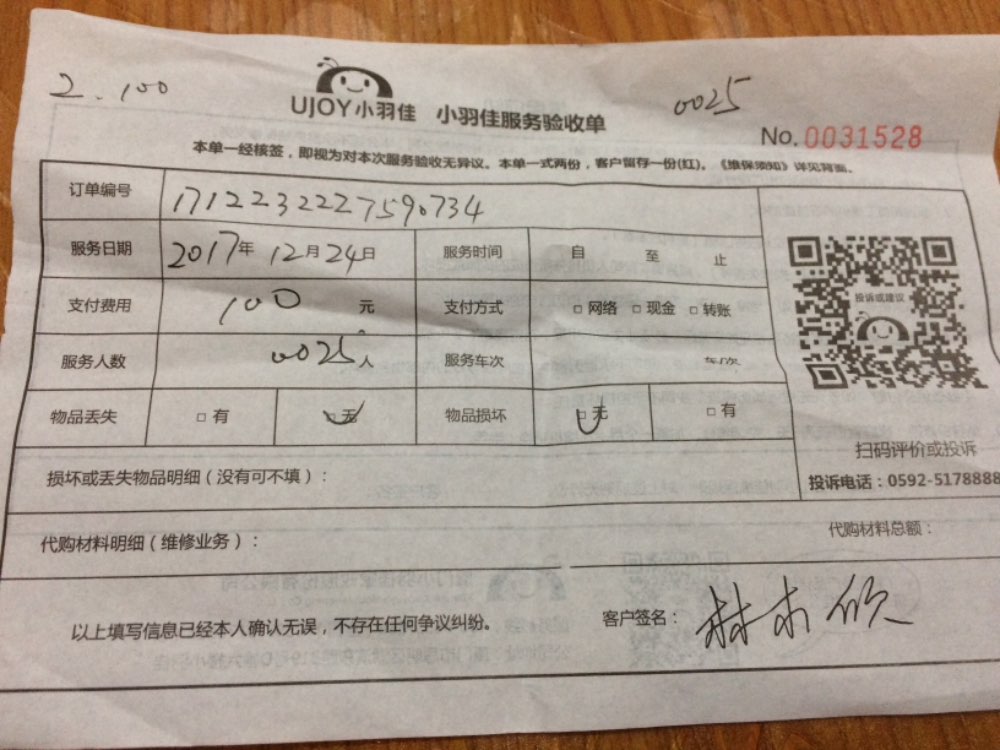 2.100
0025
UJOY小羽佳 小羽佳服务验收单
No.0031528
本单一经核签,即视为对本次服务验收无异议。本单一式两份,客户留存一份(红)。《维保须知》详见背面。
订单编号 1712232227590734
服务日期 2017年12月24日 服务时间 自 至 止
支付费用 100 元 支付方式 □网络 □现金 □转账
投诉或建议
服务人数 0025人 服务车次 车/次
物品丢失 □有 □无 物品损坏 □无 □有
扫码评价或投诉
损坏或丢失物品明细(没有可不填):
投诉电话:0592-5178888
代购材料明细(维修业务): 代购材料总额:
以上填写信息已经本人确认无误,不存在任何争议纠纷。 客户签名:林木欣